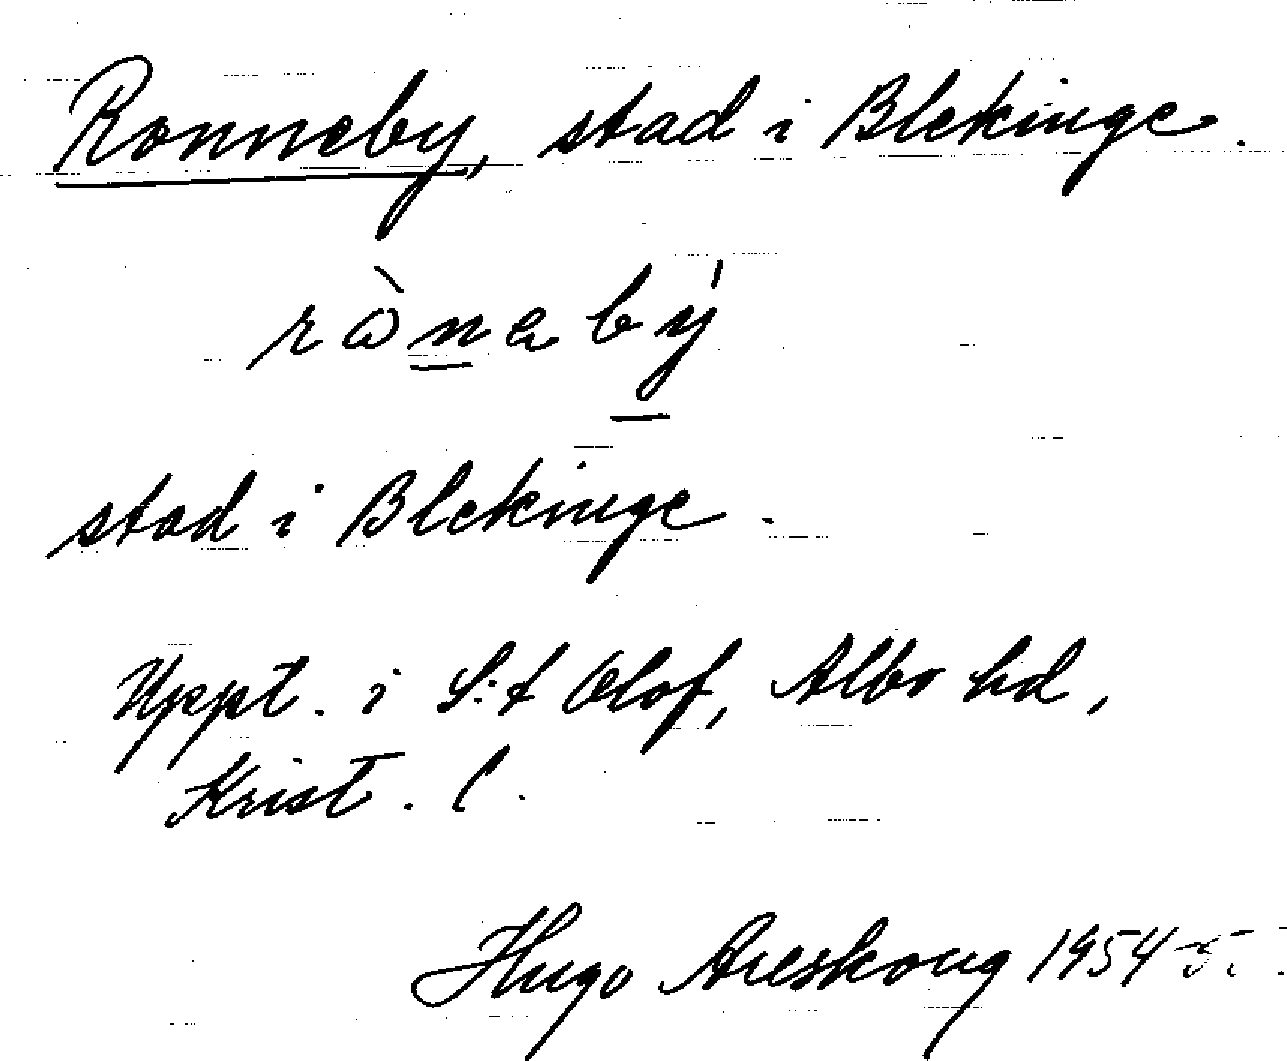 Ronneby, stad i Blekinge.
rònabý
stad i Blekinge.
Uppt. i S:t Olof, Albo hd,
Krist. l.
Hugo Areskoug 1954